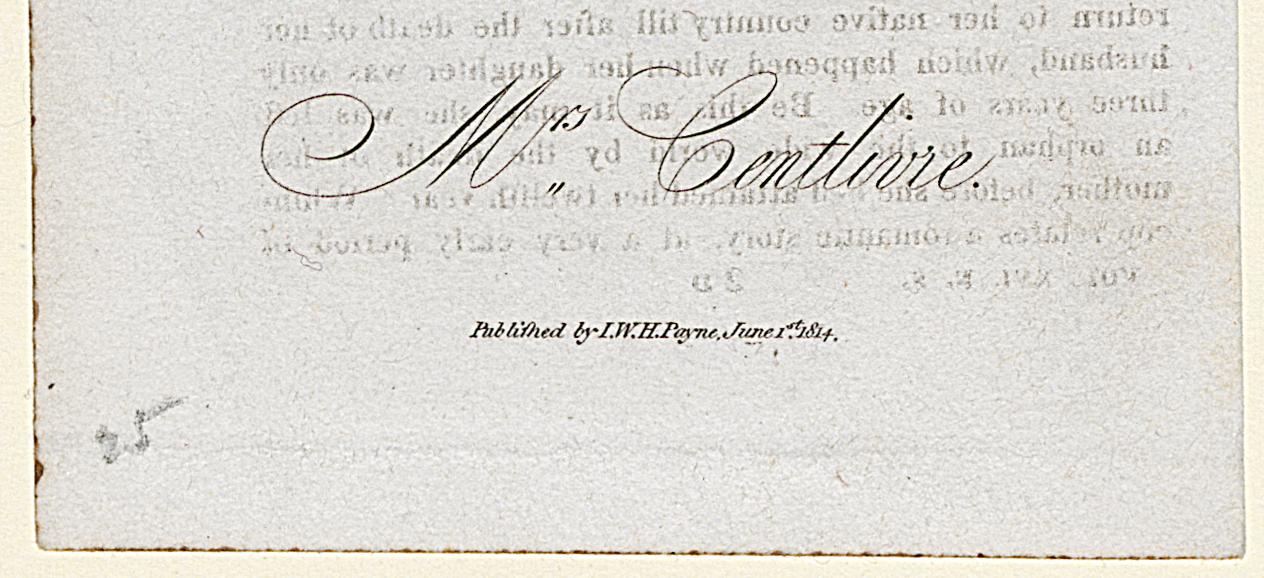 return to her native country till after the death of her
husband, which happened when her daughter was only
three years of age. Be this as it may, she was left
an orphan to the wide world by the death of her
mother, before she had attained her twelfth year. Whin-
cop relates a romantic story, at a very early period of
VOL. XVI. F. S. 2 D
Mrs Centlivre.
Publiſhed by I.W.H.Payne, June 1st. 1814.
25